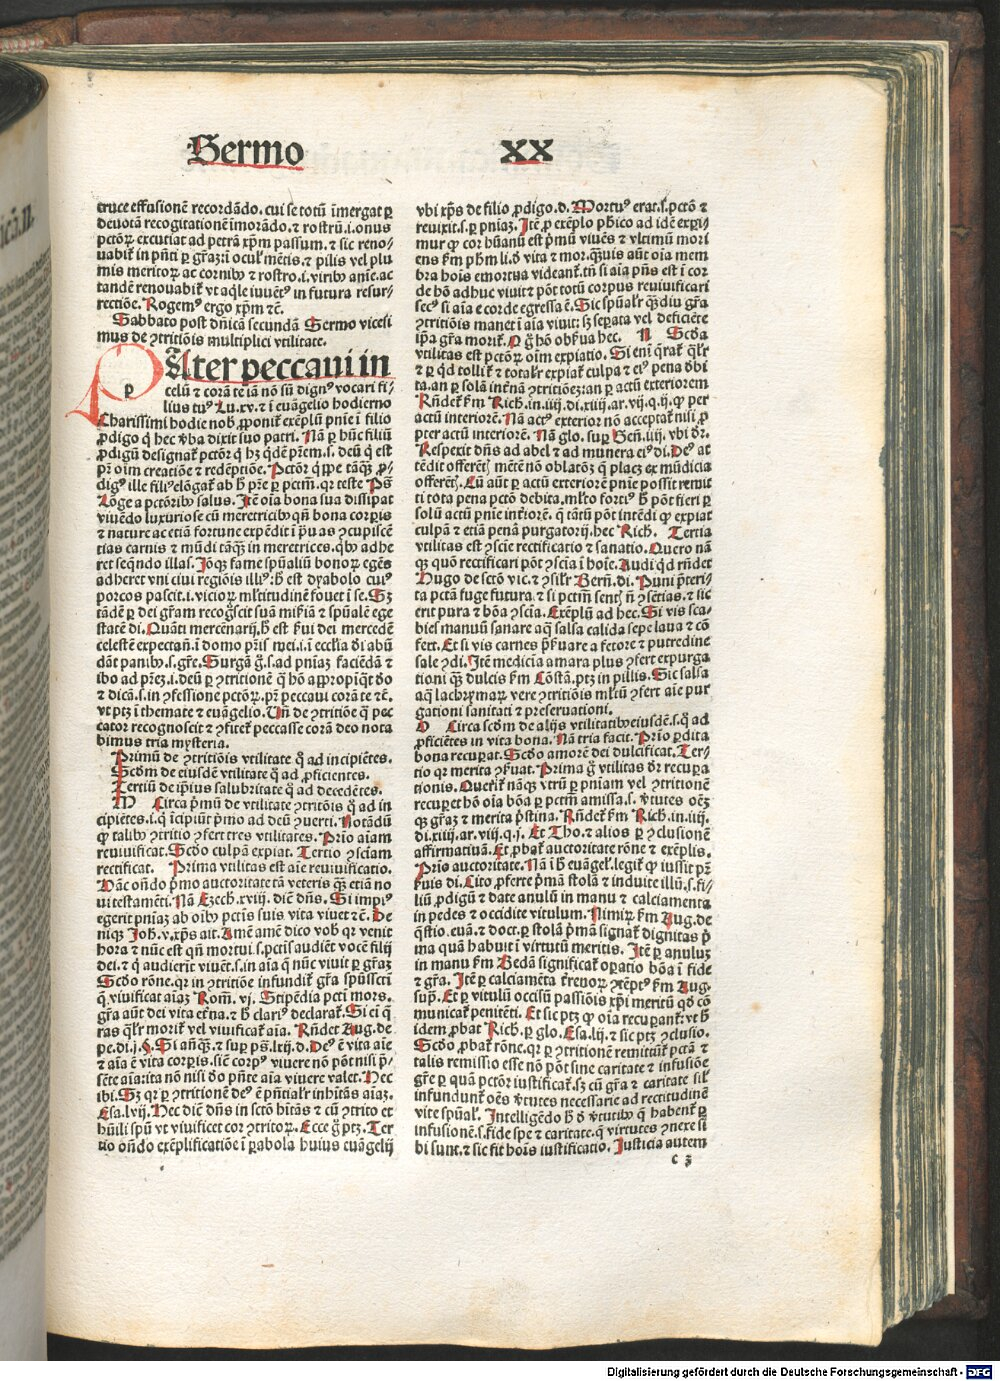 Sermo XX
cruce effusionē recordādo. cui se totū īmergat ꝑ
deuotā recogitationē imorādo. ⁊ rostrū .i. onus
pctōꝝ excutiat ad petrā xp̄m passum. ⁊ sic reno⸗
uabiť in pn̄ti ꝑ gr̄az
mis meritoꝝ ac cornibꝰ ⁊ rostro .i. viribꝰ anīe. ac
tandē renouabiť vt aq̄le iuuētꝰ in futura resur⸗
rectiōe. Rogemꝰ ergo xp̄m ⁊c̄.
Sabbato post dn̄icā secundā Sermo vicesi
mus de ↄtritiōis multiplici vtilitate.
PAter peccaui in
celū ⁊ corā te iā nō sū dignꝰ vocari fi⸗
lius tuꝰ Lu.xv. ⁊ ī euāgelio hodierno
Charissimi hodie nob̄ ꝓponiť exēplū pnīe ī filio
ꝓdigo q̄ hec v̄ba dixit suo patri. Nā ꝑ hūc filiū
ꝓdigū designať pctōr q̄ hꝫ qdē pr̄em .s. deū q̄ est
pr̄ oīm creatiōe ⁊ redēptiōe.
digꝰ ille
Lōge a pctōribꝰ salus. Itē oīa bona sua dissipat
viuēdo luxuriose cū meretricibꝰ qn̄ bona corpis
⁊ nature ac etiā fortune expēdit
tias carnis ⁊ mūdi tāqꝫ in meretrices. qbꝰ adhe
ret seqndo illas. Ioqꝫ fame spūaliū bonoꝝ egēs
adheret vni ciui regiōis illiꝰ: h̄ est dyabolo cuiꝰ
porcos pascit .i. vicioꝝ ml̄titudinē fouet ī se. Sꝫ
tādē ꝑ dei gr̄am recogscit suā mis̄iā ⁊ spūalē ege
statē di. Quāti mercenarij. h̄ est s̄ui dei mercedē
celestē expectan̄ .i. domo pr̄is mei .i. ī ecclīa dī abū
dāt panibꝰ .s. gr̄e. Surgā g̊ .s. ad pnīaꝫ faciēdā ⁊
ibo ad pr̄eꝫ .i. deū ꝑ ↄtritionē
⁊ dicā .s. in ↄfessione pctōꝝ. pr̄ peccaui corā te ⁊c̄.
vt ptꝫ ī themate ⁊ euāgelio. Un̄ de ↄtritiōe q̄ pec
cator recognoscit ⁊ ↄfiteť peccasse corā deo nota
bimus tria mysteria.
Primū de ↄtritiōis vtilitate q̄ ad incipiētes.
Scd̄m de eiusdē vtilitate q̄ ad ꝓficientes.
Tertiū de ipīus salubritate q̄ ad decedētes.
M Circa pmū de vtilitate ↄtritōis q̄ ad in
cipiētes .i. q̄ īcipiūt pmo ad deū ↄuerti. Notādū
ꝙ talibꝰ ↄtritio ↄfert tres vtilitates. Prīo aīam
reuiuificat. Scd̄o culpā expiat. Tertio ↄsciam
rectificat. Prima vtilitas est aīe reuiuificatio.
Hāc on̄do pmo auctoritate tā veteris qꝫ etiā no
ui testamēti. Nā Ezech.xviij. diē dn̄s. Si impiꝰ
egerit pnīaꝫ ab oībꝰ pctīs suis vita viuet ⁊c̄. De
niqꝫ Joh̄.v. xp̄s ait. Amē amē dico vob̄ qꝛ venit
hora ⁊ nūc est qn̄ mortui .s. pctīs audiēt vocē filij
dei. ⁊ q̄ audierīt viuēt .s. in aīa q̄ nūc viuit ꝑ gr̄aꝫ
Scd̄o rōne. qꝛ in ↄtritiōe infundiť gr̄a spūsscti
q̄ viuificat aīaꝫ Rom̄. vj. Stipēdia pcti mors.
gr̄a aūt dei vita et̄na. ⁊ h̄ clariꝰ declarať. Si eī q̄
ras qlr moriť vel viuificať aīa. Rn̄det Aug. de
Si añqꝫ. ⁊ sup ps.lxij. d. Deꝰ ē vita aīe
⁊ aīa ē vita corpis. siē corpꝰ viuere nō pōt nisi p̄
sēte aīa: ita nō nisi dō pn̄te aīa viuere valet. Hec
ibi. Sꝫ qꝛ ꝑ ↄtritionē deꝰ ē pn̄tialr inhītās aīaꝫ.
Esa.lvij. Hec diē dn̄s in scto h̄itās ⁊ cū ↄtrito et
hūili spū vt viuificet cor ↄtritoꝝ. Ecce g̊ ptꝫ. Ter
tio on̄do exēplificatiōe ī ꝑabola huius euāgelij
vbi xp̄s de filio ꝓdigo. d. Mortuꝰ erat .s. pctō ⁊
reuixit .s. ꝑ pnīaꝫ. Itē ꝓ exēplo ph̄ico ad idē expi
mur ꝙ cor hūanū est pmū viuēs ⁊ vltimū mori
ens s̄m ph̄m li. d̄ vita ⁊ mor. qꝫuis aūt oīa mem
bra hoīs emortua videanť. tn̄ si aīa pn̄s est ī cor
de hō adhuc viuit ⁊ pōt totū corpus reuiuificari
secꝰ si aīa e corde egressa ē. Sic spūalr qꝫdiu gr̄a
ↄtritiōis manet ī aīa viuit: sꝫ sepata vel deficiēte
ipā gr̄a moriť. N Scd̄a
vtilitas est pctōꝝ oīm expiatio. Si enī q̄rať qlr
⁊ ꝑ qd tolliť ⁊ totalr expiať culpa ⁊ eiꝰ pena d̄bi
ta. an ꝑ solā int̄nā ↄtritiōeꝫ: an ꝑ actū exteriorem
Rn̄deť s̄m Rich. in .iiij. di.xiiij. ar.vij. q.ij. ꝙ per
actū interiorē. Nā actꝰ exterior nō acceptať nisi ꝓ
pter actū interiorē. Nā glo. sup Gen̄.iiij. vbi dr̄.
Respexit dn̄s ad abel ⁊ ad munera eiꝰ di. Deꝰ at
tēdit offerētꝫ mētē nō oblatōꝫ q̄ placꝫ ex mūdicia
offerētꝫ. Cū aūt ꝑ actū exteriorē pnīe possit remit
ti tota pena pctō debita. ml̄to fortiꝰ h̄ pōt fieri ꝑ
solū actū pnīe int̄iorē. q̄ tātū pōt intēdi ꝙ expiat
culpā ⁊ etiā penā purgatorij. hec Rich. Tertia
vtilitas est ↄscīe rectificatio ⁊ sanatio. Quero nā
qꝫ quō rectificari pōt ↄscīa ī hoīe. Audi qd rn̄det
Hugo de sctō vic. ⁊ silr Bern̄. di. Puni p̄teri⸗
ta pctā fuge futura. ⁊ si pctm̄ sentꝫ n̄ ↄsētias. ⁊ sic
erit pura ⁊ bōa ↄscīa. Exēplū ad hec. Si vis sca⸗
biem manuū sanare aqꝫ salsa calida sepe laua ⁊ cō
fert. Et si vis carnes p̄seruare a fetore ⁊ putredine
sale ↄdi. Itē medicīa amara plus ↄfert expurga
tioni qꝫ dulcis s̄m Cōstā. ptꝫ in pillis. Sic salsa
aq̄ lachrymaꝝ vere ↄtritiōis ml̄tū ↄfert aīe pur
gationi sanitati ⁊ preseruationi.
O Circa scd̄m de alijs vtilitatibꝰ eiusdē .s. q̄ ad
ꝓficiētes in vita bona. Nā tria facit. Prīo ꝑdita
bona recupat. Scd̄o amorē dei dulcificat. Ter⸗
tio qꝛ merita ↄs̄uat. Prima g̊ vtilitas dr̄ recupa
tionis. Queriť nāqꝫ vtrū ꝑ pnīam vel ↄtritionē
recupet hō oīa bōa ꝑ pctm̄ amissa .s. v̄tutes oēs
qꝫ gr̄aꝫ ⁊ merita pstina. Rn̄deť s̄m Rich. in .iiij.
di.xiiij. ar.viij. q.j. Et Tho. ⁊ alios ꝑ ↄclusionē
affirmatiuā. Et ꝓbať auctoritate rōne ⁊ exēplis.
Prīo auctoritate. Nā ī h̄ euāgel. legiť ꝙ iussit pr̄
s̄uis di. Cito ꝓferte pmā stolā ⁊ induite illū .s. fi⸗
liū ꝓdigū ⁊ date anulū in manu ⁊ calciamenta
in pedes ⁊ occidite vitulum. Nimiꝝ s̄m Aug. de
q̄stio. euā. ⁊ doct. ꝑ stolā pmā signať dignitas p
ma quā habuit ī virtutū meritis. Itē ꝑ anuluꝫ
in manu s̄m Bedā significať oꝑatio bōa ī fide
⁊ gr̄a. Itē ꝑ calciamēta s̄m Aug.
sup̄. Et ꝑ vitulū occisū passiōis xp̄i meritū qd cō
municať penitēti. Et sic ptꝫ ꝙ oīa recupant: vt h̄
idem ꝓbat Rich. ꝑ glo. Esa.lij. ⁊ sic ptꝫ ↄclusio.
Scd̄o ꝓbať rōne. qꝛ ꝑ ↄtritionē remittunť pctā ⁊
talis remissio esse nō pōt sine caritate ⁊ infusiōe
gr̄e ꝑ quā pctōr iustificať. sꝫ cū gr̄a ⁊ caritate sil̄
infundunť oēs v̄tutes necessarie ad rectitudinē
vite spūal. Intelligēdo h̄ d̄ v̄tutibꝰ q̄ habenť ꝑ
infusionē .s. fide spe ⁊ caritate. q̄ virtutes ↄnexe si
bi sunt. ⁊ sic fit hoīs iustificatio. Justicia autem
c 3
Digitalisierung gefördert durch die Deutsche Forschungsgemeinschaft - DFG